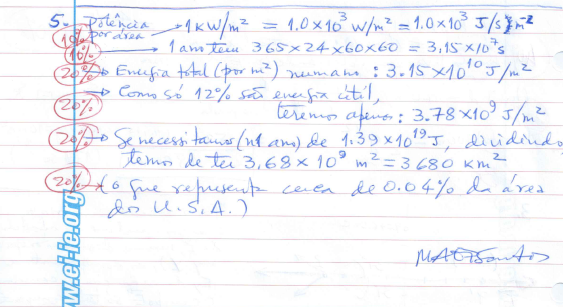 5. Potência por área → 1 kW/m² = 1.0×10³ W/m² = 1.0×10³ J/s m⁻²
10%
10% → 1 ano tem 365×24×60×60 = 3,15×10⁷s
20% → Energia total (por m²) num ano: 3.15×10¹⁰ J/m²
→ Como só 12% são energia útil,
20% teremos apenas: 3.78×10⁹ J/m²
20% → Se necessitamos (n1 ano) de 1.39×10¹⁹ J, dividindo
temos de ter 3,68×10⁹ m² = 3680 km²
20% → (o que representa cerca de 0.04% da área
dos U.S.A.)
w.ei-ie.org